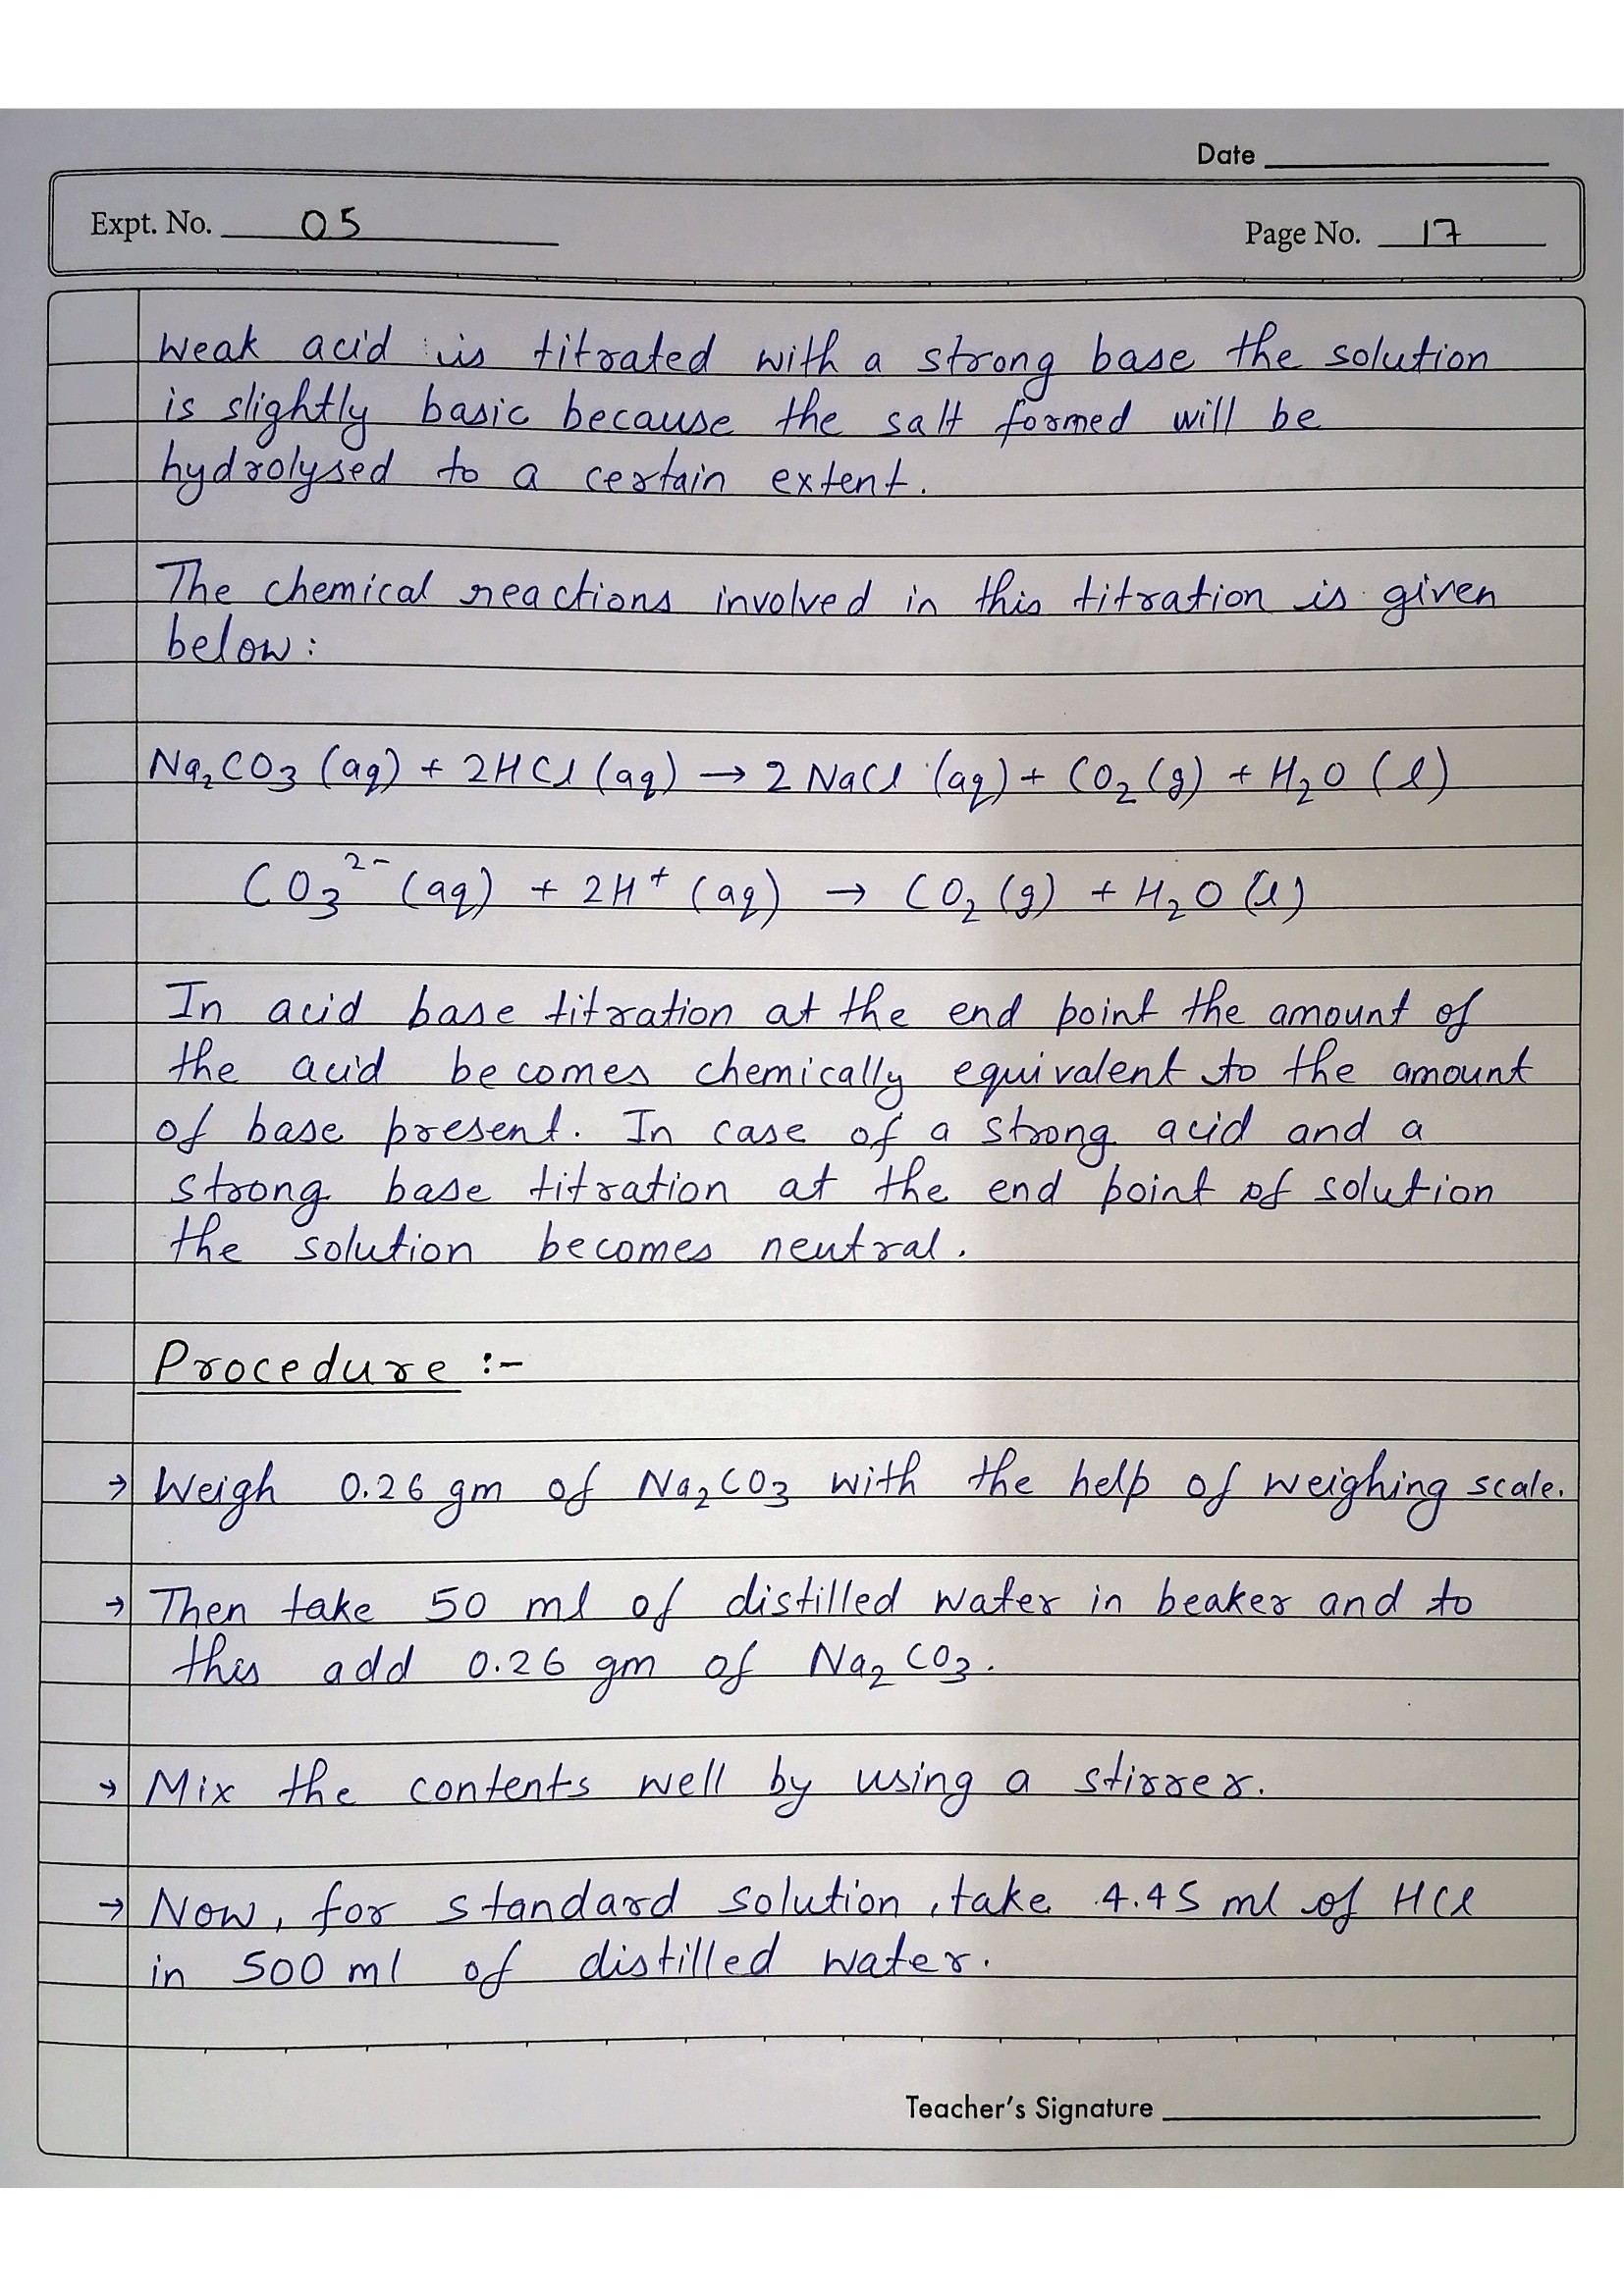 Date
Expt. No. 05
Page No. 17
weak acid is titrated with a strong base the solution
is slightly basic because the salt formed will be
hydrolysed to a certain extent.
The chemical reactions involved in this titration is given
below:
Na₂CO₃ (aq) + 2HCl (aq) → 2 NaCl (aq) + CO₂ (g) + H₂O (l)
CO₃²⁻ (aq) + 2H⁺ (aq) → CO₂ (g) + H₂O (l)
In acid base titration at the end point the amount of
the acid becomes chemically equivalent to the amount
of base present. In case of a strong acid and a
strong base titration at the end point of solution
the solution becomes neutral.
Procedure :-
→ Weigh 0.26 gm of Na₂CO₃ with the help of weighing scale.
→ Then take 50 ml of distilled water in beaker and to
this add 0.26 gm of Na₂CO₃.
→ Mix the contents well by using a stirrer.
→ Now, for standard solution, take 4.45 ml of HCl
in 500 ml of distilled water.
Teacher's Signature